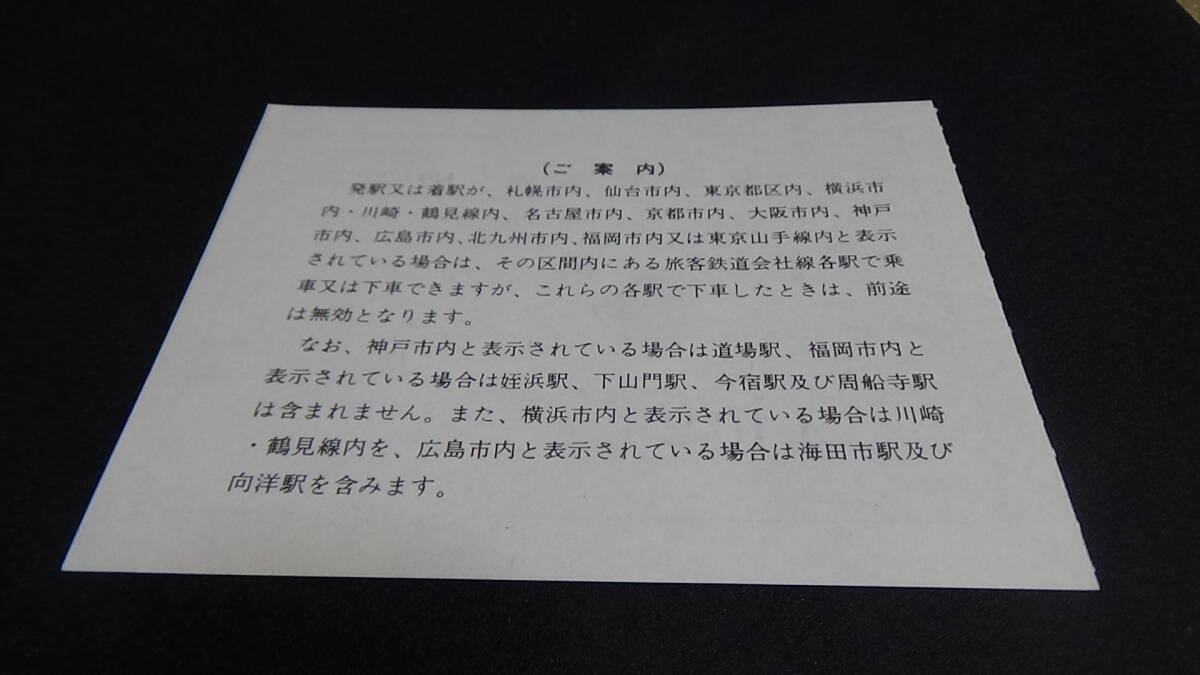 (ご案内)
発駅又は着駅が、札幌市内、仙台市内、東京都区内、横浜市
内・川崎・鶴見線内、名古屋市内、京都市内、大阪市内、神戸
市内、広島市内、北九州市内、福岡市内又は東京山手線内と表示
されている場合は、その区間内にある旅客鉄道会社線各駅で乗
車又は下車できますが、これらの各駅で下車したときは、前途
は無効となります。
なお、神戸市内と表示されている場合は道場駅、福岡市内と
表示されている場合は姪浜駅、下山門駅、今宿駅及び周船寺駅
は含まれません。また、横浜市内と表示されている場合は川崎
・鶴見線内を、広島市内と表示されている場合は海田市駅及び
向洋駅を含みます。